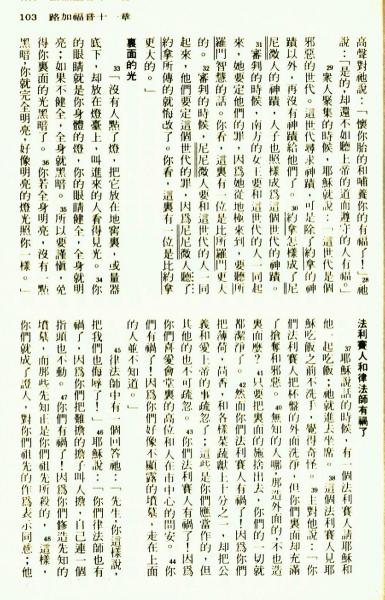 103 路加福音十一章
高聲對祂說：「懷你胎的和哺養你的有福了！」28祂
說：「是的，却還不如聽上帝的道而遵守的人有福。」
29 眾人聚集的時候，耶穌就說：「這世代是個
邪惡的世代。這世代尋求神蹟，可是除了約拿的神
蹟以外，再沒有神蹟給他們了。30約拿怎樣成了尼
尼微人的神蹟，人子也照樣成爲這個世代的神蹟。
31審判的時候，南方的女王要和這世代的人一同起
來，她要定他們的罪，因爲她從地極來到，要聽所
羅門智慧的話。你看，這裏有一位是比所羅門更大
的。32審判的時候，尼尼微人要和這世代的人一同
起來，他們要定這個世代的罪，因爲尼尼微人聽了
約拿所傳的就悔改了。你看，這裏有一位是比約拿
更大的。」
裏面的光
33「沒有人點了燈，把它放在地窖裏，或量器
底下，却放在燈臺上，叫進來的人看得見光。34你
的眼睛就是你身體的燈，你的眼睛健全，全身就明
亮；如果不健全，全身就黑暗。35所以要謹慎，免
得你裏面的光黑暗了。36你若全身明亮，沒有一點
黑暗，你就完全明亮，好像明亮的燈光照你一樣。」
法利賽人和律法師有禍了
37 耶穌說話的時候，有一個法利賽人請耶穌和
他一起吃飯；祂就進去坐席。38這個法利賽人見耶
穌吃飯之前不洗手，覺得奇怪。39主對他說：「你
們法利賽人把杯盤的外面洗淨，但你們裏面却充滿
了搶奪和邪惡。40無知的人哪，那造外面的，不也造
裏面麽？41只要把裏面的施捨出去，你們的一切就
都潔淨了。42然而你們法利賽人有禍了！因爲你們
把薄荷、茴香，和各樣菜蔬獻上十分之一，却把公
義和愛上帝的事疏忽了；這些是你們應當作的，但
其他的也不可疏忽。43你們法利賽人有禍了！因爲
你們喜愛會堂裏的高位和人在市中心的問安。44你
們有禍了！因爲你們好像不顯露的墳墓，走在上面
的人並不知道。」
45 律法師中有一個回答祂：「先生，你這樣說，
把我們也侮辱了！」46耶穌說：「你們律法師也有
禍了，因爲你們把難擔的擔子叫人擔，自己連一個
指頭也不動。47你們有禍了！因爲你們修造先知的
墳墓，而那些先知正是你們祖先所殺的。48這樣，
你們就成了證人，對你們祖先的作爲表示同意；他